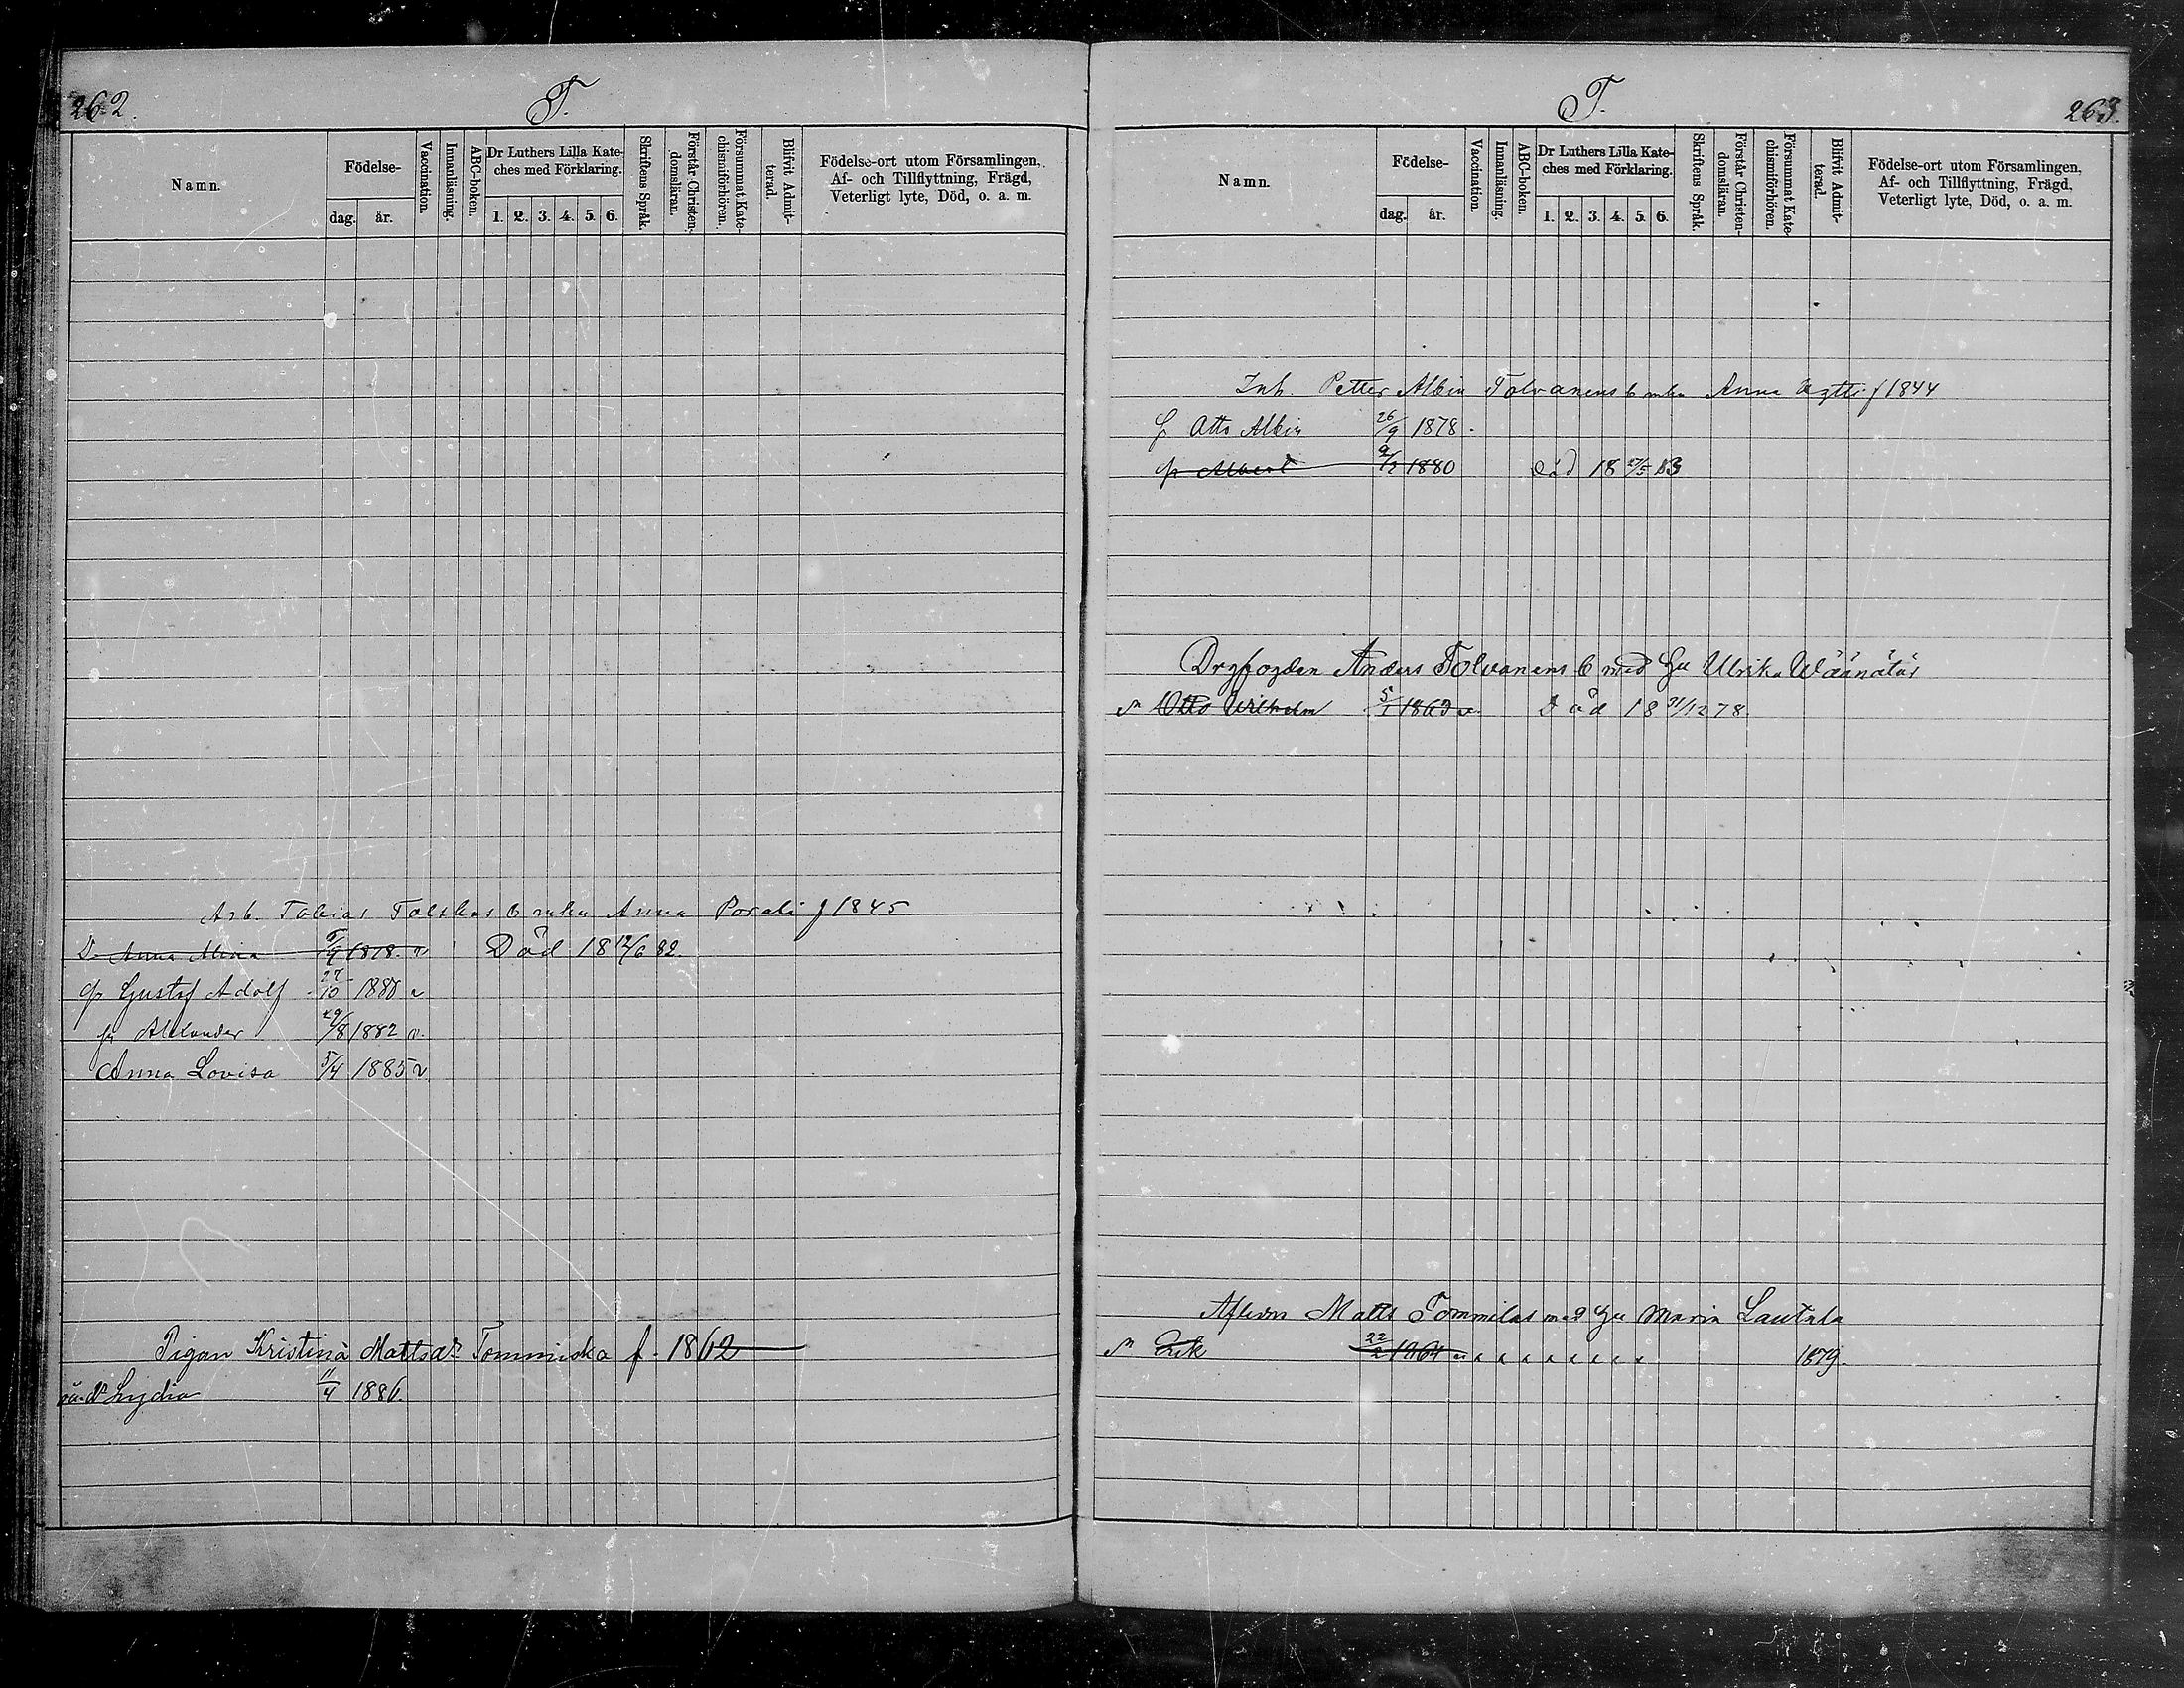 262.
T.
Namn.
Födelse-
dag.
år.
Vaccination.
Innanläsning.
ABC-boken.
Dr Luthers Lilla Kate-
ches med Förklaring.
1. 2. 3. 4. 5. 6.
Skriftens Språk.
Förstår Christen-
domsläran.
Försummat Kate-
chismiförhören.
Blifvit Admit-
terad.
Födelse-ort utom Församlingen,
Af- och Tillflyttning, Frägd,
Veterligt lyte, Död, o. a. m.
Arb. Tobias b Anna f 1845
D. Anna 1878. v Död 18 12/6 82.
Gustaf Adolf 27/10 1880 v
Alexander 29/8 1882 v.
Anna Lovisa 5/4 1885 v
Pigan Kristina Mattsdr Tommiska f. 1862
oä. dr Lydia 11/4 1886.
T.
263.
Namn.
Födelse-
dag.
år.
Vaccination.
Innanläsning.
ABC-boken.
Dr Luthers Lilla Kate-
ches med Förklaring.
1. 2. 3. 4. 5. 6.
Skriftens Språk.
Förstår Christen-
domsläran.
Försummat Kate-
chismiförhören.
Blifvit Admit-
terad.
Födelse-ort utom Församlingen,
Af- och Tillflyttning, Frägd,
Veterligt lyte, Död, o. a. m.
Inh. Petter Albin Tolvanens b Anna f 1844
Otto Albin 26/9 1878.
Albert 1880 död 18 27/5 83
Anders Tolvanens b med Hu Ulrika Wäänätär
Otto Wilhelm 5/1 1863 v. Död 18 31/12 78.
Matts Tommilas med Hu Maria Lautala
Erik 22/2 1864 v x x x x x x x x 1879.